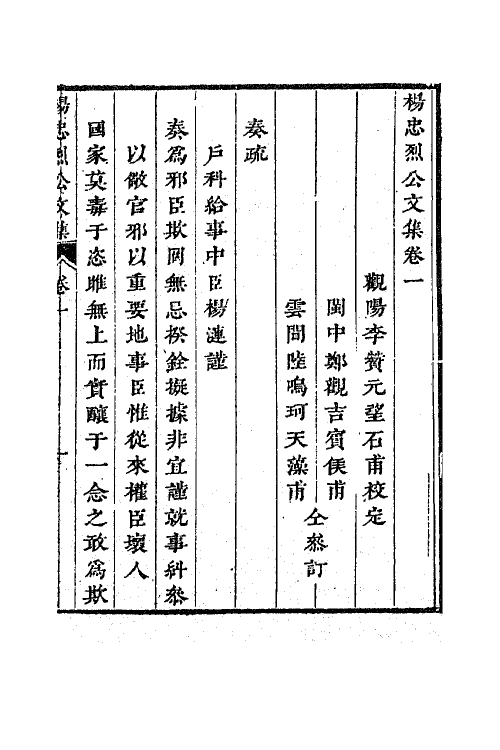 楊忠烈公文集卷一
觀陽李贊元望石甫校定
閩中鄭觀吉賓侯甫
雲間陸鳴珂天藻甫
仝叅訂
奏疏
戶科給事中臣楊漣謹
奏為邪臣欺罔無忌揆銓擬據非宜謹就事糾叅
以儆官邪以重要地事臣惟從來權臣壞人
國家莫毒于恣睢無上而實釀于一念之敢為欺
楊忠烈公文集
卷一
一